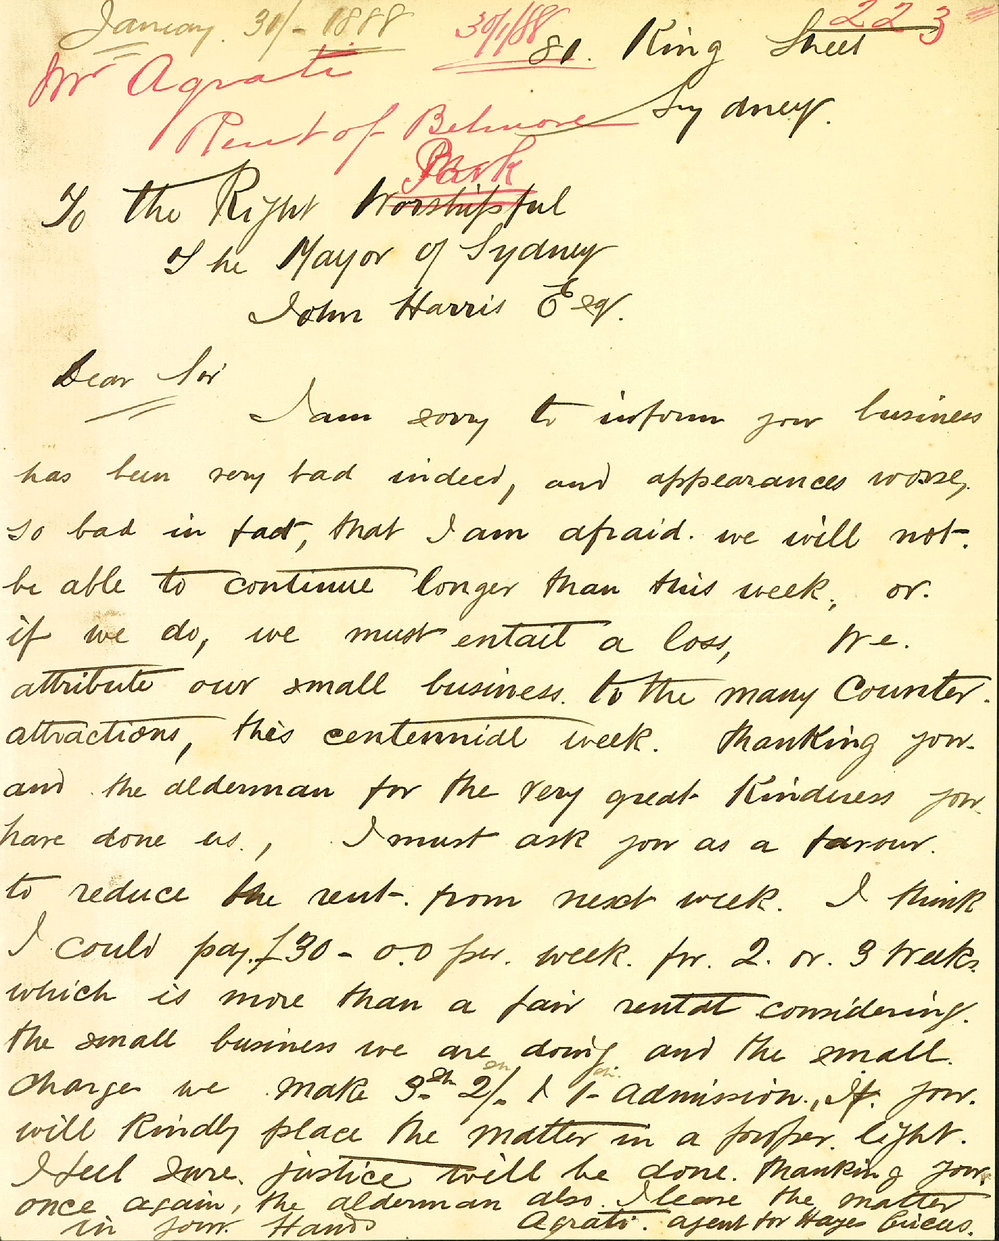 January. 30/- 1888
30/1/88
223
81. King Street
Mr Agrati
Sydney.
Rent of Belmore
Park
To the Right Worshipful
The Mayor of Sydney
John Harris Esq.
Dear Sir
I am sorry to inform you business
has been very bad indeed, and appearances worse,
so bad in fact, that I am afraid. we will not.
be able to continue longer than this week, or.
if we do, we must entail a loss, We.
attribute our small business. to the many Counter.
attractions, this centennial week. thanking you.
and the alderman for the very great Kindness you
have done us., I must ask you as a favour.
to reduce the rent. from next week. I think
I could pay £30-0.0 per. week. for. 2. or. 3 Weeks.
which is more than a fair rental considering.
the small business we are doing and the small.
charge we make 3sh 2/- & 1- admission., If. you.
will kindly place the matter in a proper. light.
I feel sure. justice will be done. thanking you.
once again, the alderman also. I leave the matter
in your Hands
Agrati. agent for Hayes Circus.